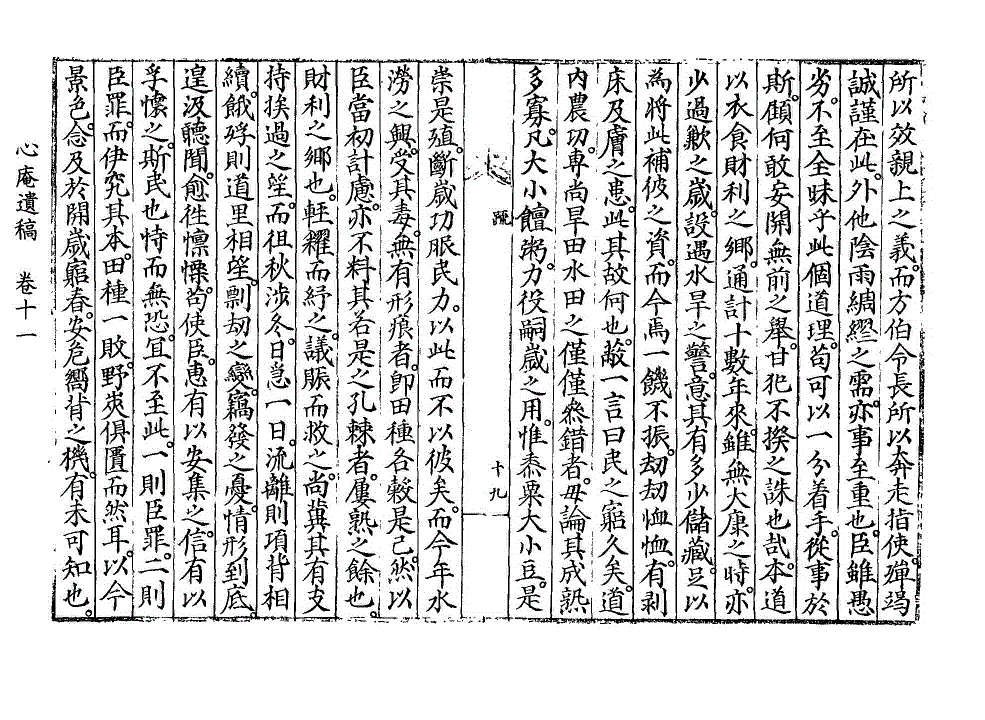 所以效親上之義。而方伯令長所以奔走指使。殫竭
誠謹在此。外他陰雨綢繆之需。亦事至重也。臣雖愚
劣。不至全昧乎此個道理。苟可以一分着手。從事於
斯。顧何敢妄開無前之擧。甘犯不揆之誅也哉。本道
以衣食財利之鄕。通計十數年來。雖無大康之時。亦
少過歉之歲。設遇水旱之警。意其有多少儲藏。足以
為將此補彼之資。而今焉一饑不振。劫劫恤恤。有剥
床及膚之患。此其故何也。蔽一言曰民之窮久矣。道
內農功。專尚旱田水田之僅僅叅錯者。毋論其成熟
多寡。凡大小饘粥。力役嗣歲之用。惟黍粟大小豆。是
崇是殖。斷歲功眂民力。以此而不以彼矣。而今年水
澇之興。受其毒。無有形痕者。卽田種各穀是已。然以
臣當初計慮。亦不料其若是之孔棘者。屢熟之餘也。
財利之鄕也。輕糶而紓之。議賑而救之。尚冀其有支
持挨過之望。而徂秋涉冬。日急一日。流離則項背相
續。餓殍則道里相望。剽刼之變。竊發之憂。情形到底。
遑汲聽聞。愈徃懍懍。苟使臣。惠有以安集之。信有以
孚懷之。斯民也恃而無恐。冝不至此。一則臣罪。二則
臣罪。而伊究其本。田種一敗。野爽俱匱而然耳。以今
景色。念及於開歲窮春。安危嚮背之機。有未可知也。
疏
十九
心庵遺稿 卷十一